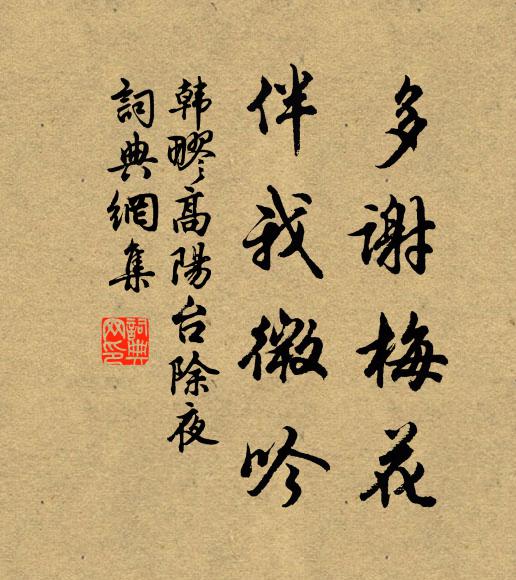 多谢梅花
伴我微吟
韩疁高陽台除夜
詞典網集
詞典
网印